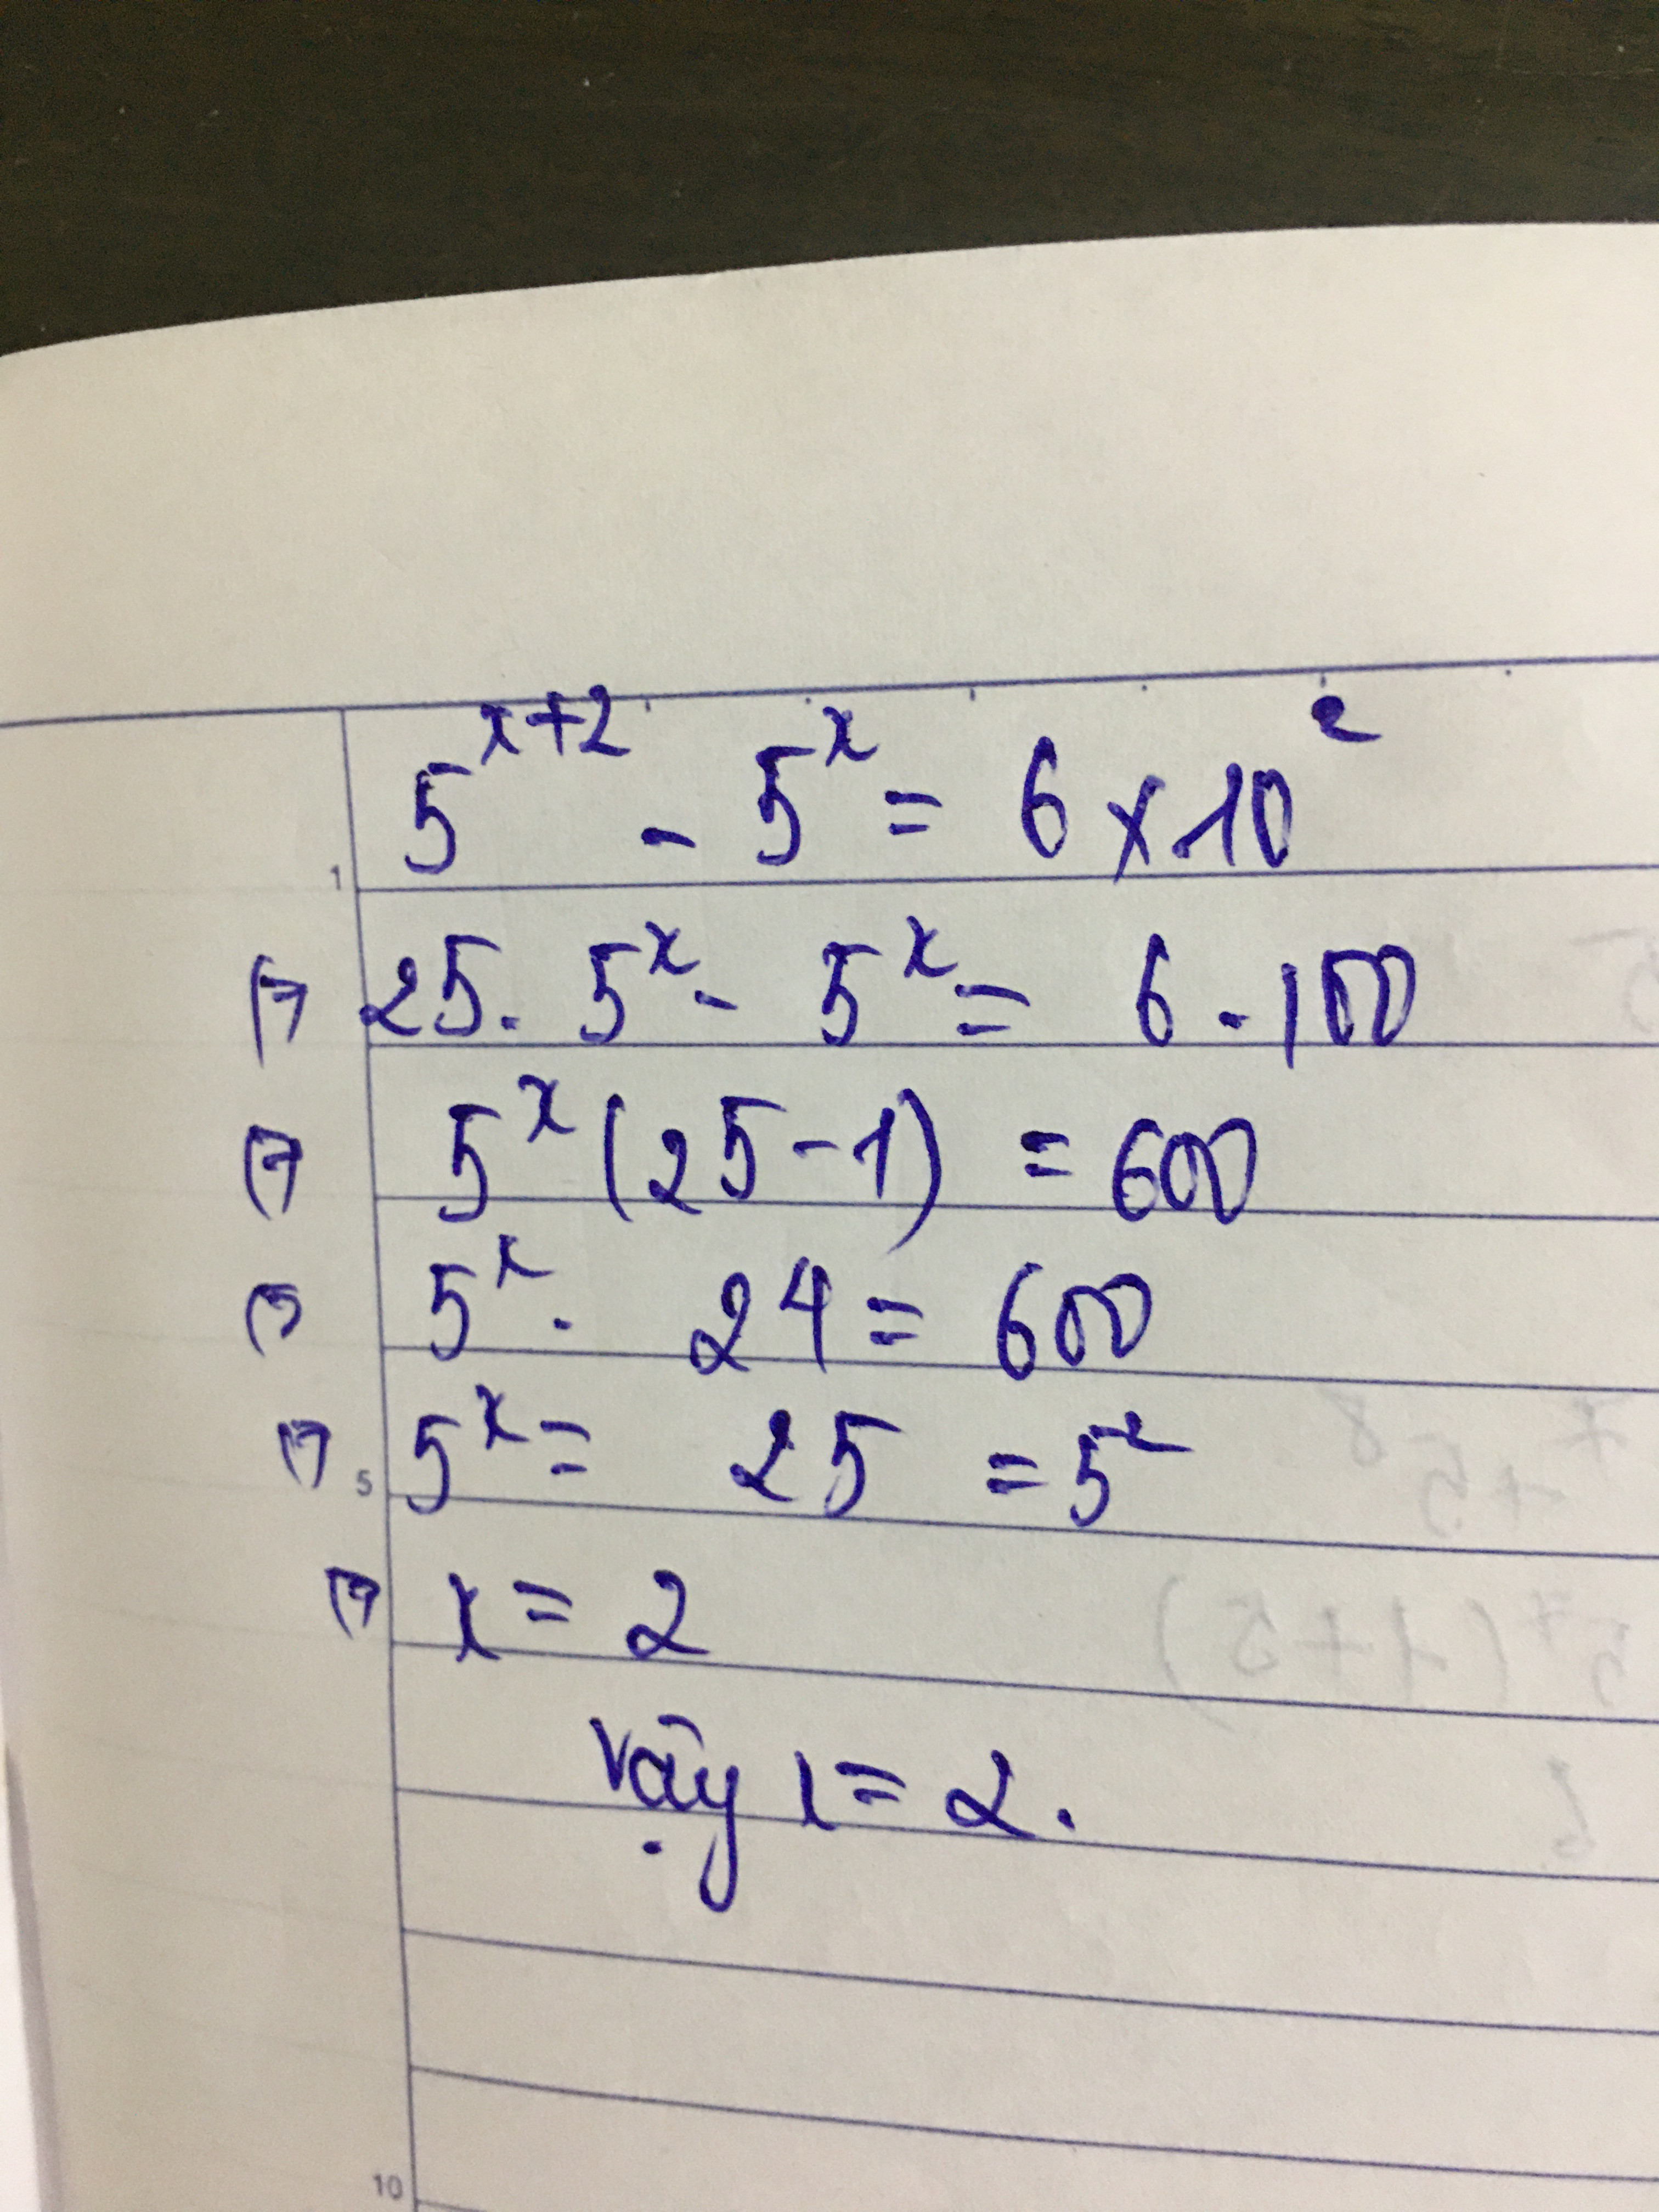 5^{x+2} - 5^x = 6 × 10^2
1
⇔ 25. 5^x - 5^x = 6 . 100
⇔ 5^x (25 - 1) = 600
⇔ 5^x . 24 = 600
⇔ 5^x = 25 = 5^2
5
⇔ x = 2
Vậy x = 2.
10